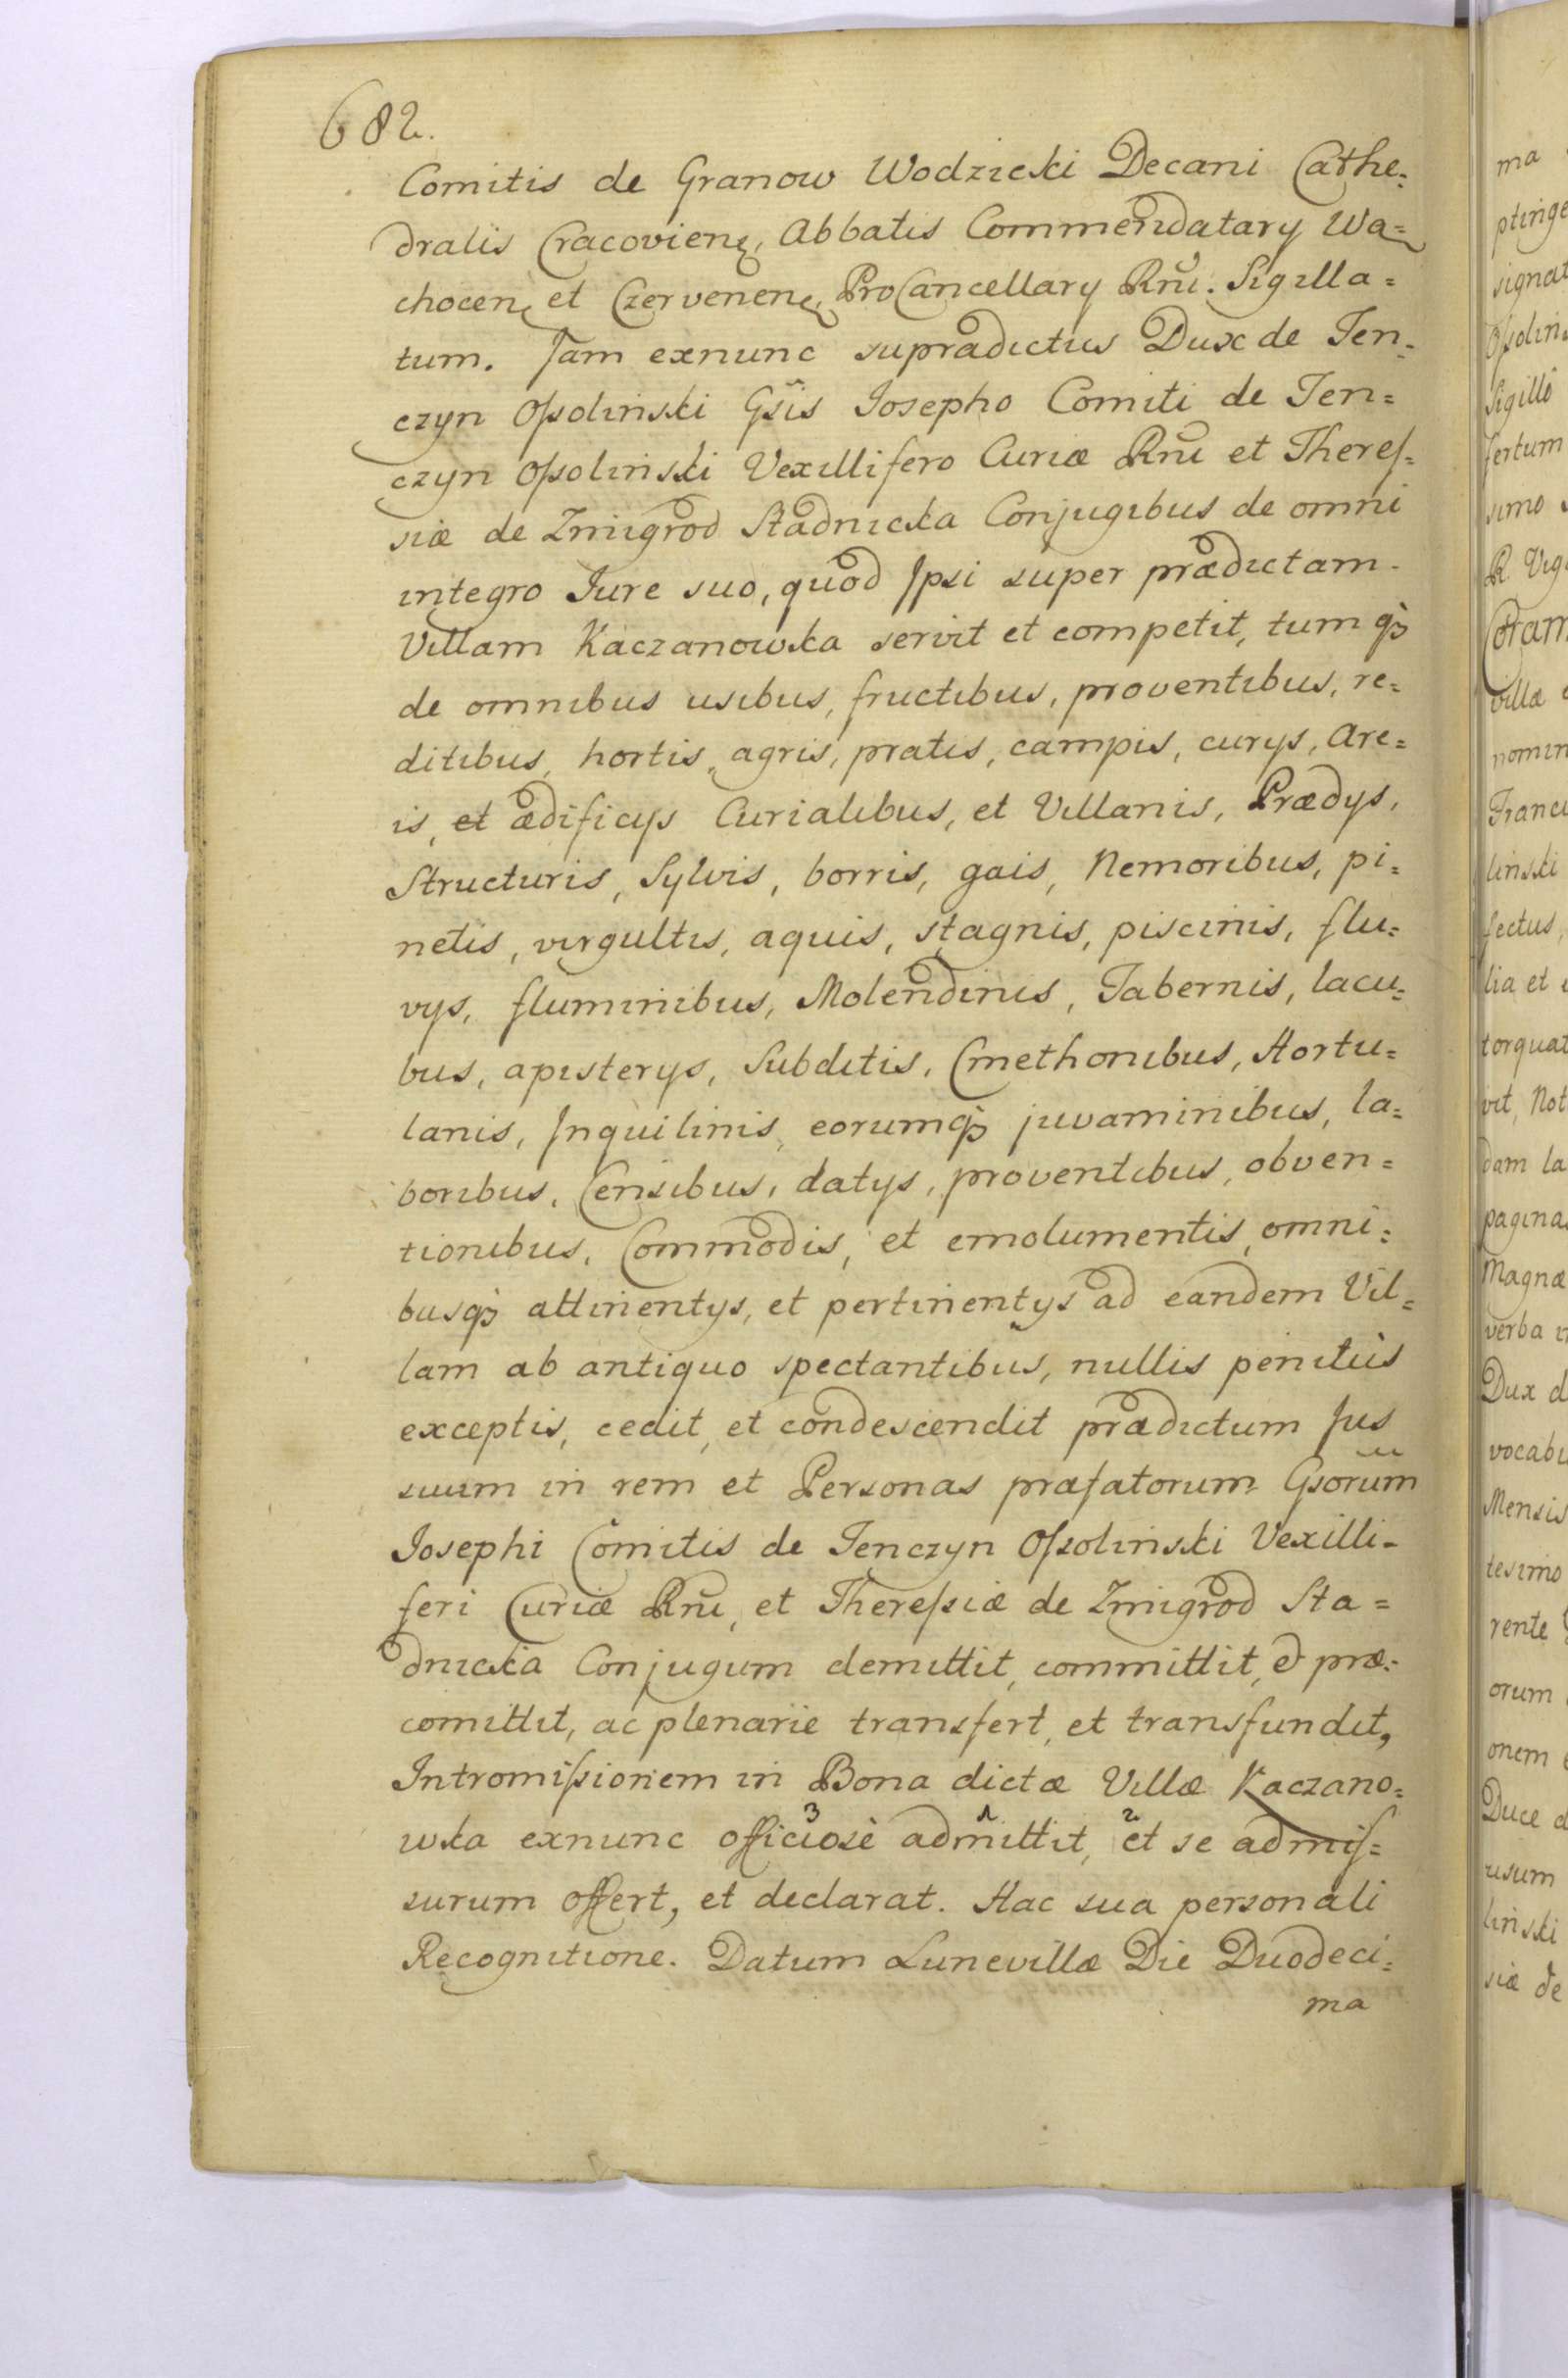 682.
Comitis de Granow Wodzicki Decani Cathe=
dralis Cracovienę, Abbatis Commendatarÿ Wa=
chocenę et Czervenenę, ProCancellarÿ Rnĩ. Sigilla=
tum. Jam exnunc supradictus Dux de Ten=
czyn Oſsolinski Gsĩs Josepho Comiti de Ten=
czyn Oſsolinski Vexillifero Curiæ Rnĩ et Thereſ=
siæ de Zmigrod Stadnicka Conjugibus de omni
integro Jure suo, quod Ipsi super prædictam
Villam Kaczanowka servit et competit, tumqȝ
de omnibus usibus, fructibus, proventibus, re=
ditibus, hortis, agris, pratis, campis, curÿs, Are=
is, et ædificÿs Curialibus, et Villanis, Prædÿs,
Structuris, Sylvis, borris, gais, Nemoribus, pi=
netis, virgultis, aquis, stagnis, piscinis, flu=
vÿs, fluminibus, Molendinis, Tabernis, lacu=
bus, apisterÿs, Subditis, Cmethonibus, Hortu=
lanis, Inquilinis, eorumqȝ juvaminibus, la=
boribus, Censibus, datÿs, proventibus, obven=
tionibus, Commodis, et emolumentis, omni=
busqȝ attinentÿs, et pertinentÿs ad eandem Vil=
lam ab antiquo spectantibus, nullis penitùs
exceptis, cedit, et condescendit prædictum Jus
suum in rem et Personas præfatorum Gsorũm
Josephi Comitis de Tenczyn Oſsolinski Vexilli=
feri Curiæ Rnĩ, et Thereſsiæ de Zmigrod Sta=
dnicka Conjugum demittit, committit, & præ=
comittit, ac plenarie transfert, et transfundit,
Intromiſsionem in Bona dictæ Villæ Kaczano=
wka exnunc officiosè admittit, et se admiſ=
3 1 2
surum offert, et declarat. Hac sua personali
Recognitione. Datum Lunevillæ Die Duodeci=
ma
ma
signat
Sigillô
fertum
simo
Coram
villæ
nomin
linski
fectus,
lia et
torquat
vit, Not
dam la
pagina
Magnæ
verba
Dux d
vocabu
Mensis
tesimo
rente
orum
onem
Duce d
usum
linski
siæ de